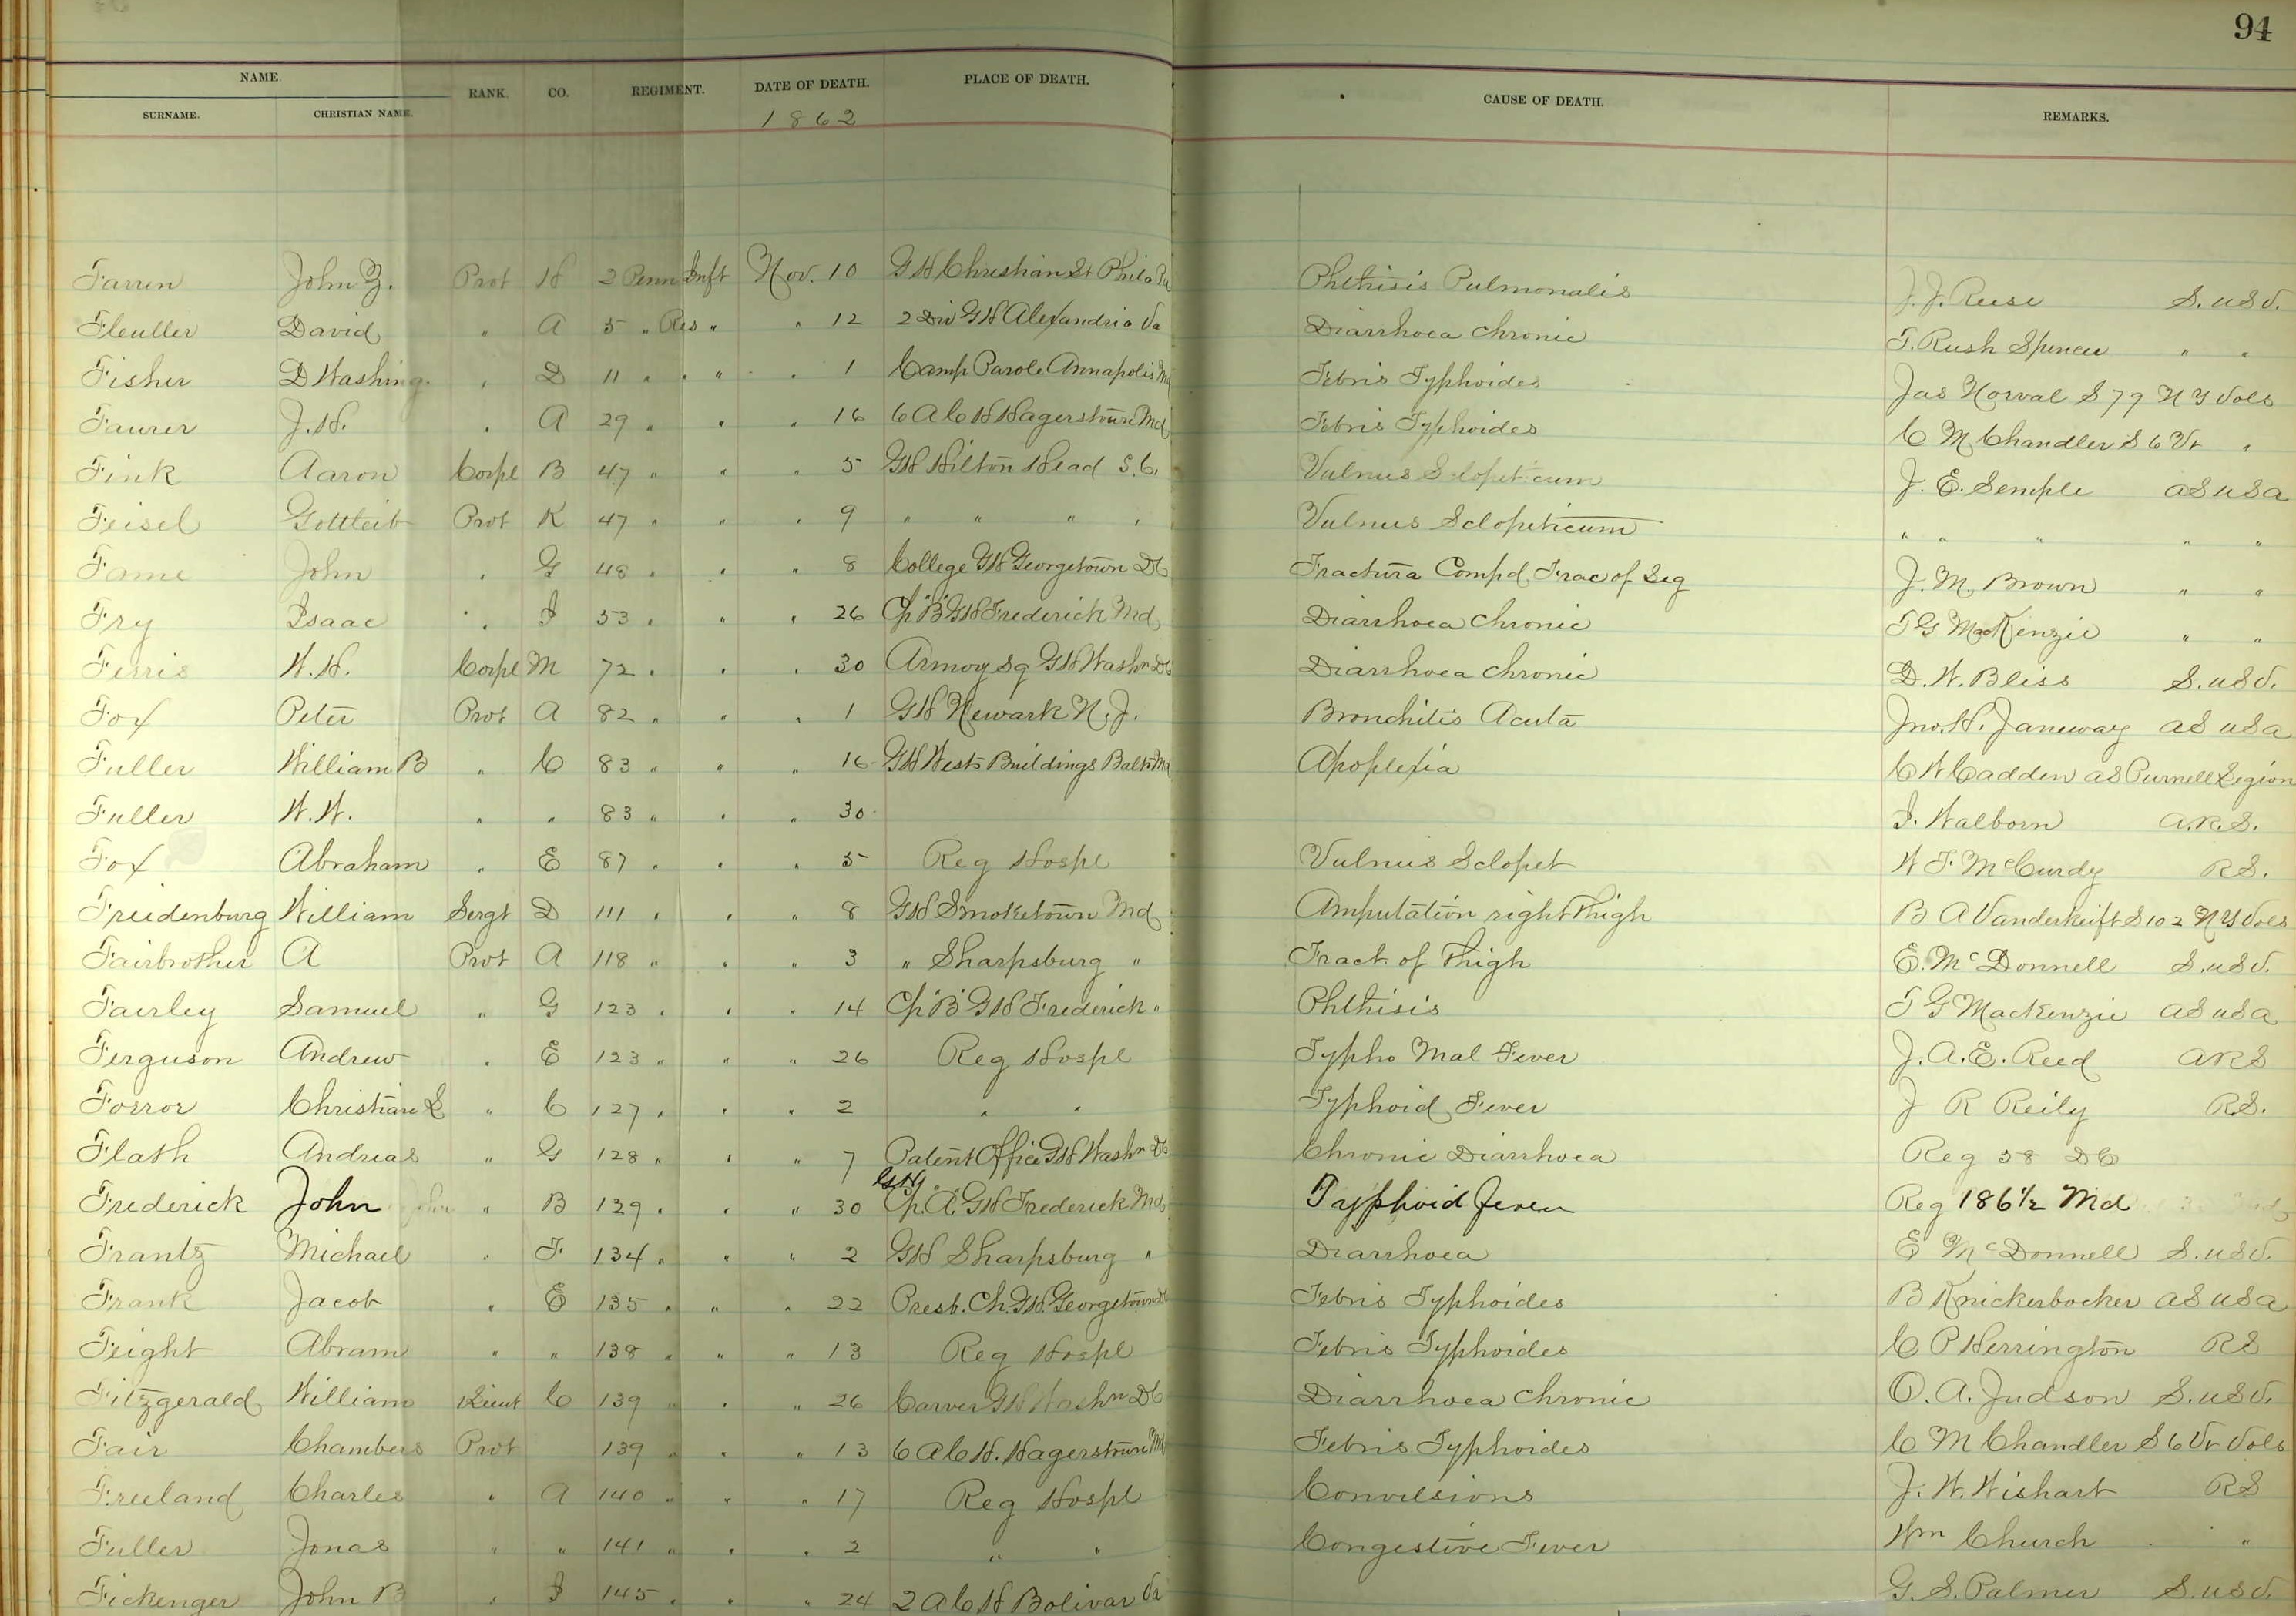 94
NAME. RANK. CO. REGIMENT. DATE OF DEATH. PLACE OF DEATH. CAUSE OF DEATH. REMARKS.
SURNAME. CHRISTIAN NAME. 1862
Farren John Z. Prvt H 2 Penn Inft Nov. 10 GH Christian St Phila Pa Phthisis Pulmonalis J. J. Reese S. USV.
Fleuller David " A 5 " Res " " 12 2 Div GH Alexandria Va Diarrhoea Chronic T. Rush Spencer " "
Fisher D Washing. " D 11 " " " " 1 Camp Parole Annapolis Md Febris Typhoides Jas Norval S 79 NY Vols
Faurer J. H. " A 29 " " " 16 6 A C H Hagerstown Md Febris Typhoides C M Chandler S 6 Vt "
Fink Aaron Corpl B 47 " " " 5 GH Hilton Head S.C. Vulnus Sclopeticum J. E. Semple AS USA
Feisel Gottleib Prvt K 47 " " " 9 " " " " Vulnus Sclopeticum " " " " "
Fame John " G 48 " " " 8 College GH Georgetown DC Fractura Compd, Frac of Leg J. M. Brown " "
Fry Isaac " I 53 " " " 26 Cp "B" GH Frederick Md Diarrhoea Chronic T G MacKenzie " "
Ferris W. H. Corpl M 72 " " " 30 Armory Sq GH Washn DC Diarrhoea Chronic D. W. Bliss S. USV.
Fox Peter Prvt A 82 " " " 1 GH Newark N.J. Bronchitis Acuta Jno. H. Janeway AS USA
Fuller William B " C 83 " " " 16 GH Wests Buildings Balto Md Apoplexia C W Cadden AS Purnell Legion
Fuller W. W. " " 83 " " " 30 I. Walborn A.R.S.
Fox Abraham " E 87 " " " 5 Reg Hospl Vulnus Sclopet W F McCurdy RS.
Freidenburg William Sergt D 111 " " " 8 GH Smoketown Md Amputation right Thigh B A Vanderkieft S 102 NY Vols
Fairbrother A Prvt A 118 " " " 3 " Sharpsburg " Fract. of Thigh E. McDonnell S. USV.
Fairley Samuel " G 123 " " " 14 Cp "B" GH Frederick " Phthisis T G MacKenzie AS USA
Ferguson Andrew " E 123 " " " 26 Reg Hospl Typho Mal Fever J. A. E. Reed ARS
Forror Christian L " C 127 " " " 2 " " Typhoid Fever J R Reily R.S.
Flath Andreas " G 128 " " " 7 Patent Office GH Washn DC Chronic Diarrhoea Reg 38 DC
Frederick John " B 129 " " " 30 Cp. "A" GH Frederick Md Typhoid Fever Reg 186 1/2 Md
Frantz Michael " F 134 " " " 2 GH Sharpsburg " Diarrhoea E McDonnell S. USV.
Frank Jacob " E 135 " " " 22 Presb. Ch. GH Georgetown DC Febris Typhoides B Knickerbocker AS USA
Feight Abram " " 138 " " " 13 Reg Hospl Febris Typhoides C P Herrington RS
Fitzgerald William Lieut C 139 " " " 26 Carver GH Washn DC Diarrhoea Chronic O. A. Judson S. USV.
Fair Chambers Prvt 139 " " " 13 6 A C H. Hagerstown Md Febris Typhoides C M Chandler S 6 Vt Vols
Freeland Charles " A 140 " " " 17 Reg Hospl Convulsions J. W. Wishart RS
Fuller Jonas " " 141 " " " 2 " " Congestive Fever Wm Church "
Fickenger John B " I 145 " " " 24 2 A C H Bolivar Va G. S. Palmer S. USV.